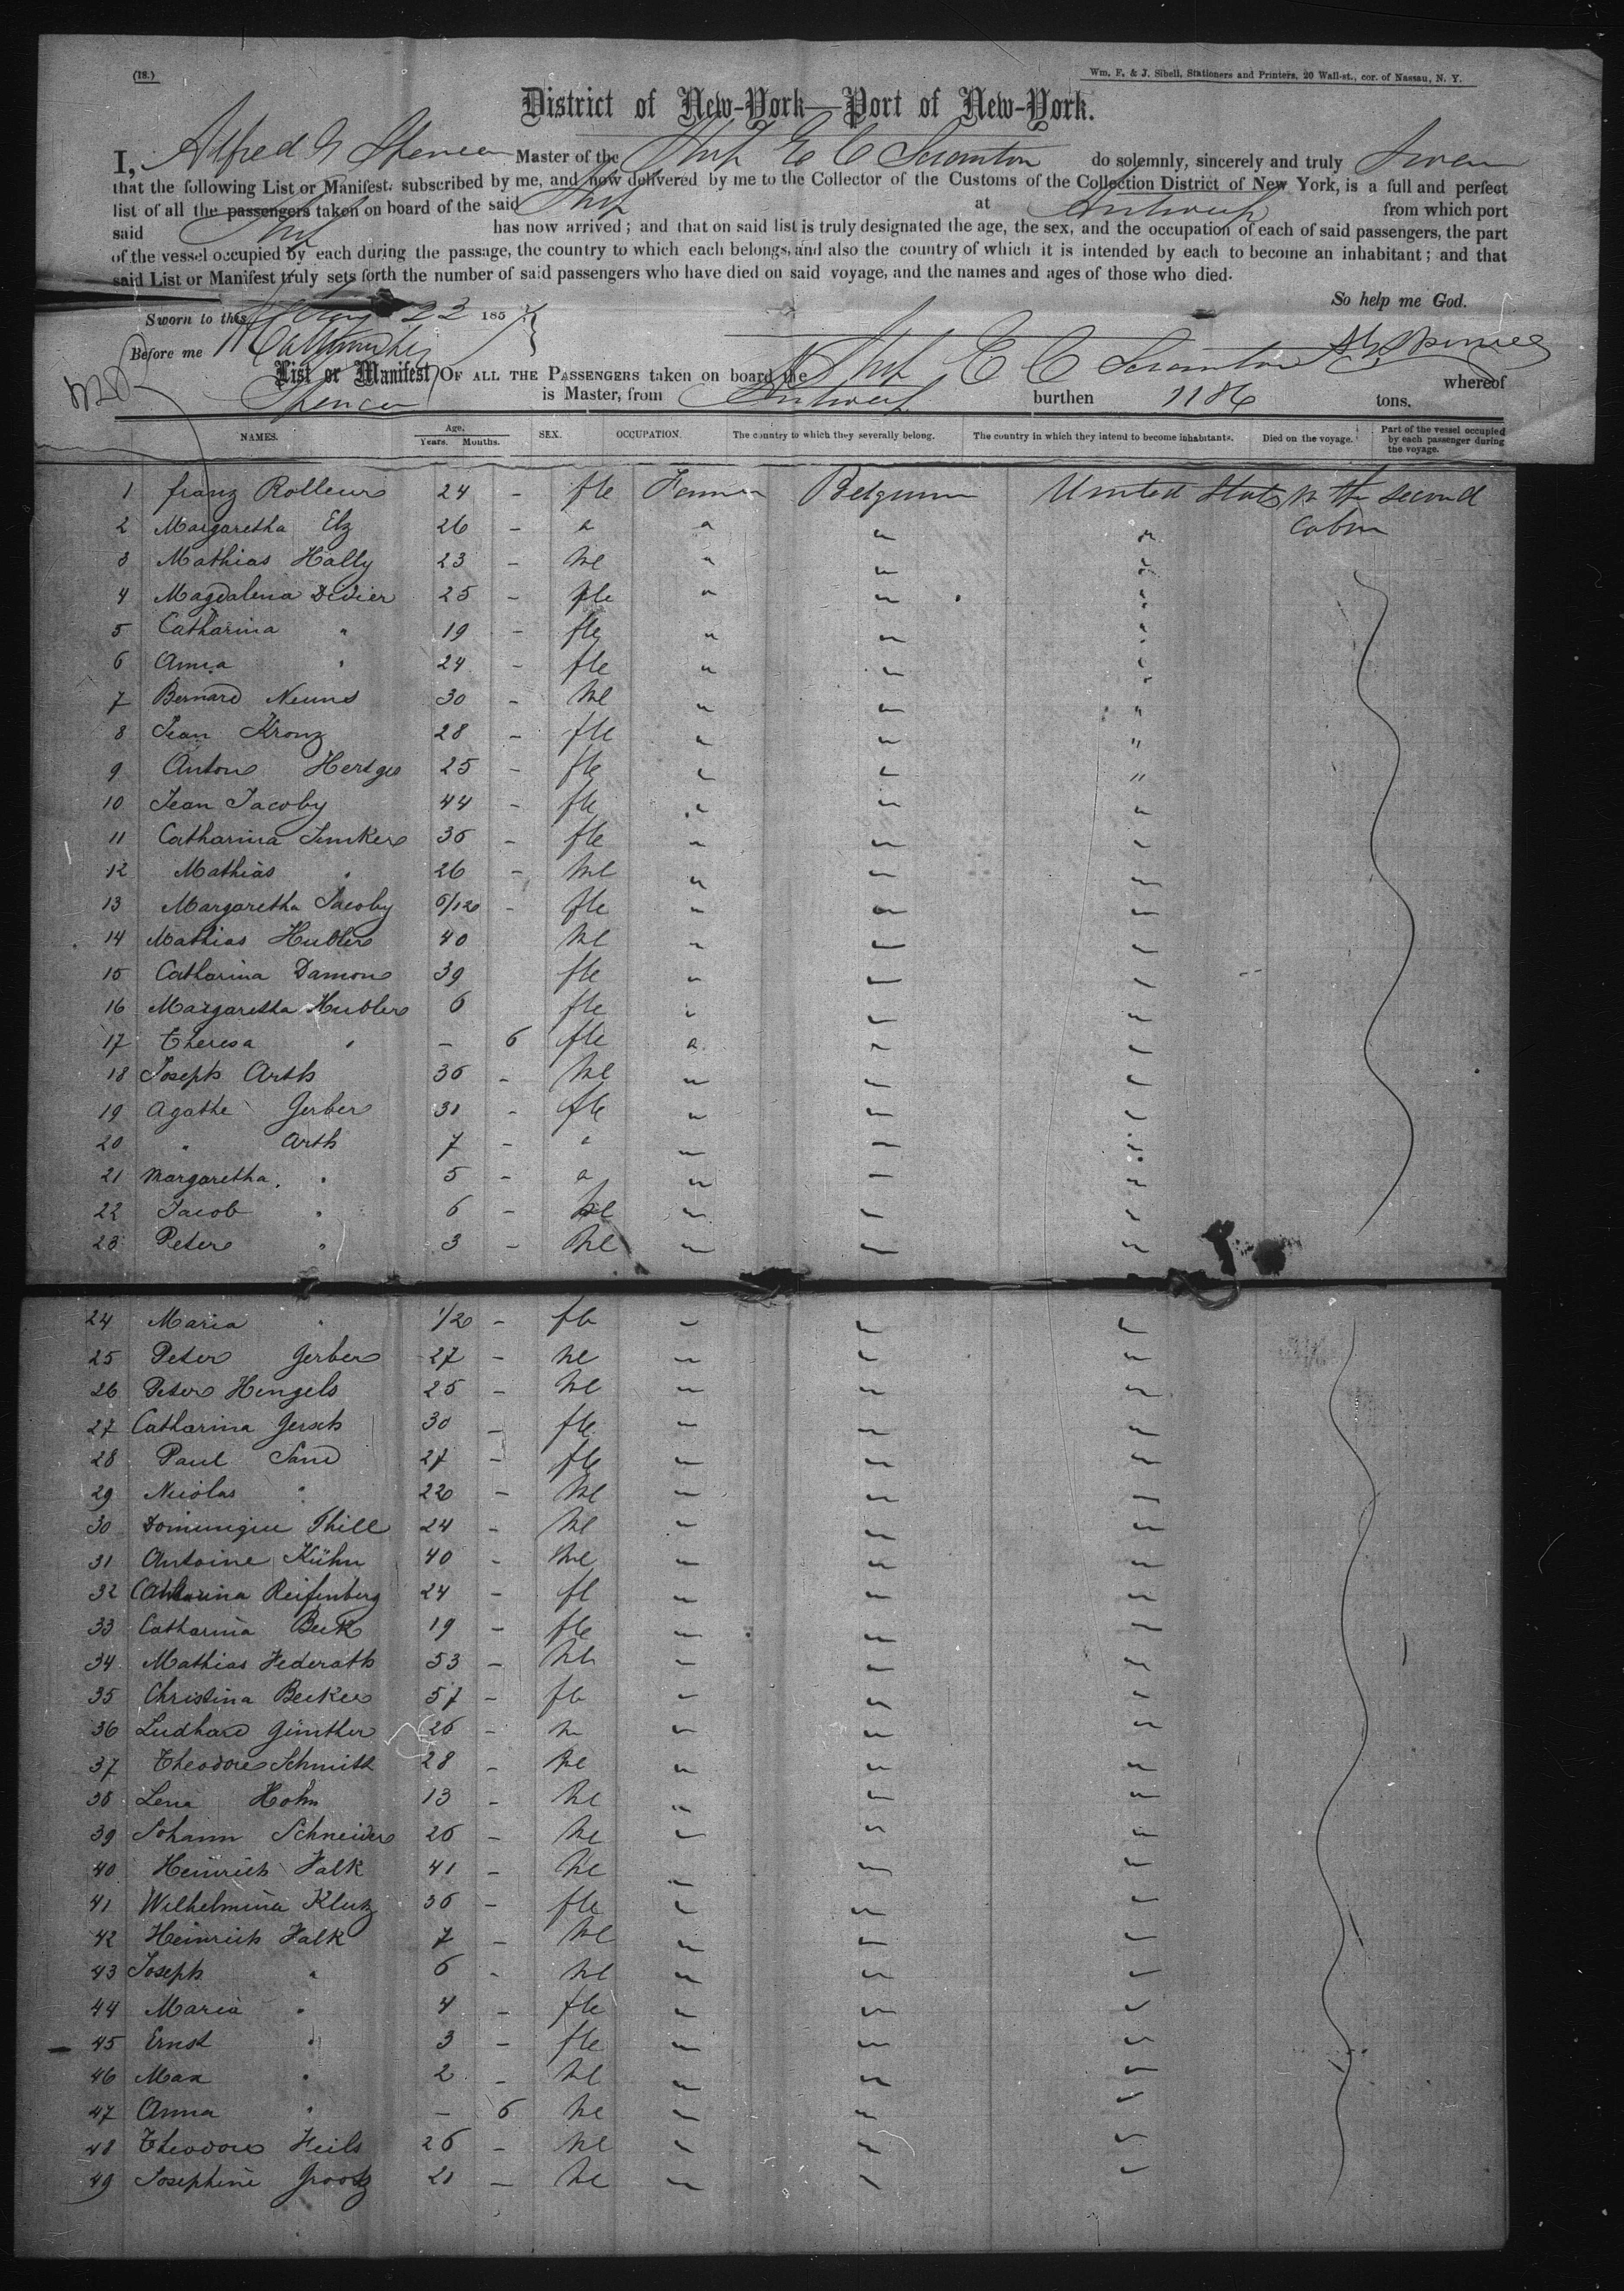 (18.)
Wm. F. & J. Sibell, Stationers and Printers, 20 Wall-st., cor. of Nassau, N. Y.
District of New-York—Port of New-York.
I, Alfred G Spencer Master of the Ship E C Scranton do solemnly, sincerely and truly Swear
that the following List or Manifest, subscribed by me, and now delivered by me to the Collector of the Customs of the Collection District of New York, is a full and perfect
list of all the passengers taken on board of the said Ship at Antwerp from which port
said Ship has now arrived; and that on said list is truly designated the age, the sex, and the occupation of each of said passengers, the part
of the vessel occupied by each during the passage, the country to which each belongs, and also the country of which it is intended by each to become an inhabitant; and that
said List or Manifest truly sets forth the number of said passengers who have died on said voyage, and the names and ages of those who died.
So help me God.
Sworn to this May 22 1857
Before me
List or Manifest OF ALL THE PASSENGERS taken on board the Ship E C Scranton whereof
Spencer is Master, from Antwerp burthen 1186 tons.
NAMES. Age. Years. Months. SEX. OCCUPATION. The country to which they severally belong. The country in which they intend to become inhabitants. Died on the voyage. Part of the vessel occupied by each passenger during the voyage.
1 franz Rolleurs 24 - fle Farmer Belgium United States in the second
2 Margaretha Elz 26 - " " " " Cabin
3 Mathias Hally 23 - ml " " "
4 Magdalena Didier 25 - fle " " "
5 Catharina " 19 - fle " " "
6 Anna " 24 - fle " " "
7 Bernard Neuns 30 - ml " " "
8 Jean Kronz 28 - fle " " "
9 Anton Hertges 25 - fle " " "
10 Jean Jacoby 44 - fle " " "
11 Catharina 36 - fle " " "
12 Mathias " 26 - ml " " "
13 Margaretha Jacoby 6/12 - fle " " "
14 Mathias Hubler 40 ml " " "
15 Catharina Damon 39 fle " " "
16 Margaretha Hubler 6 fle " " "
17 Theresa " - 6 fle " " "
18 Joseph Arth 36 - ml " " "
19 Agathe Gerber 31 - fle " " "
20 " Arth 7 - " " " "
21 Margaretha " 5 - " " " "
22 Jacob " 6 - ml " " "
23 Peter " 3 - ml " " "
24 Maria " 1/2 - fle " " "
25 Peter Gerber 27 - ml " " "
26 Peter Hengels 25 - ml " " "
27 Catharina Gersch 30 - fle " " "
28 Paul Sand 27 - fle " " "
29 Nicolas " 22 - ml " " "
30 Dominique Thill 24 - ml " " "
31 Antoine Kühn 40 - ml " " "
32 Catharina Reifenberg 24 - fl " " "
33 Catharina Beck 19 - fle " " "
34 Mathias Federath 53 - ml " " "
35 Christina Becker 57 - fle " " "
36 Ludhard Günther 26 - m " " "
37 Theodore Schmitt 28 - ml " " "
38 Lena Hohn 13 - ml " " "
39 Johann Schneider 26 - ml " " "
40 Heinrich Falk 41 - ml " " "
41 Wilhelmina Klutz 36 - fle " " "
42 Heinrich Falk 7 - ml " " "
43 Joseph " 6 - ml " " "
44 Maria " 4 - fle " " "
45 Ernst " 3 - fle " " "
46 Max " 2 - ml " " "
47 Anna " - 6 ml " " "
48 Theodore Heils 26 - ml " " "
49 Josephine Grootz 21 - ml " " "